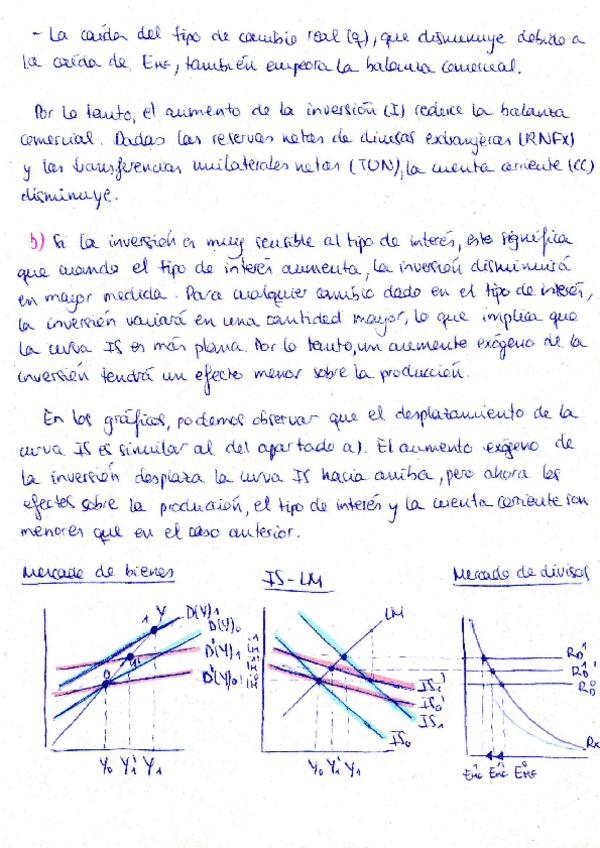 - La caída del tipo de cambio real (q), que disminuye debido a
la caída de EHE, también empeora la balanza comercial.
Por lo tanto, el aumento de la inversión (I) reduce la balanza
comercial. Dadas las reservas netas de divisas extranjeras (RNFX)
y las transferencias unilaterales netas (TUN), la cuenta corriente (CC)
disminuye.
b) Si la inversión es muy sensible al tipo de interés, esto significa
que cuando el tipo de interés aumenta, la inversión disminuirá
en mayor medida. Para cualquier cambio dado en el tipo de interés,
la inversión variará en una cantidad mayor, lo que implica que
la curva IS es más plana. Por lo tanto, un aumento exógeno de la
inversión tendrá un efecto menor sobre la producción.
En los gráficos, podemos observar que el desplazamiento de la
curva IS es similar al del apartado a). El aumento exógeno de
la inversión desplaza la curva IS hacia arriba, pero ahora los
efectos sobre la producción, el tipo de interés y la cuenta corriente son
menores que en el caso anterior.
Mercado de bienes
IS-LM
Mercado de divisas
1 Y D(Y)1
D(Y)0
1' D'(Y)1
0 D'(Y)0
Y0 Y1' Y1
LM
IS1'
IS0'
IS1
IS0
Y0 Y1' Y1
RD1
RD1'
RD0